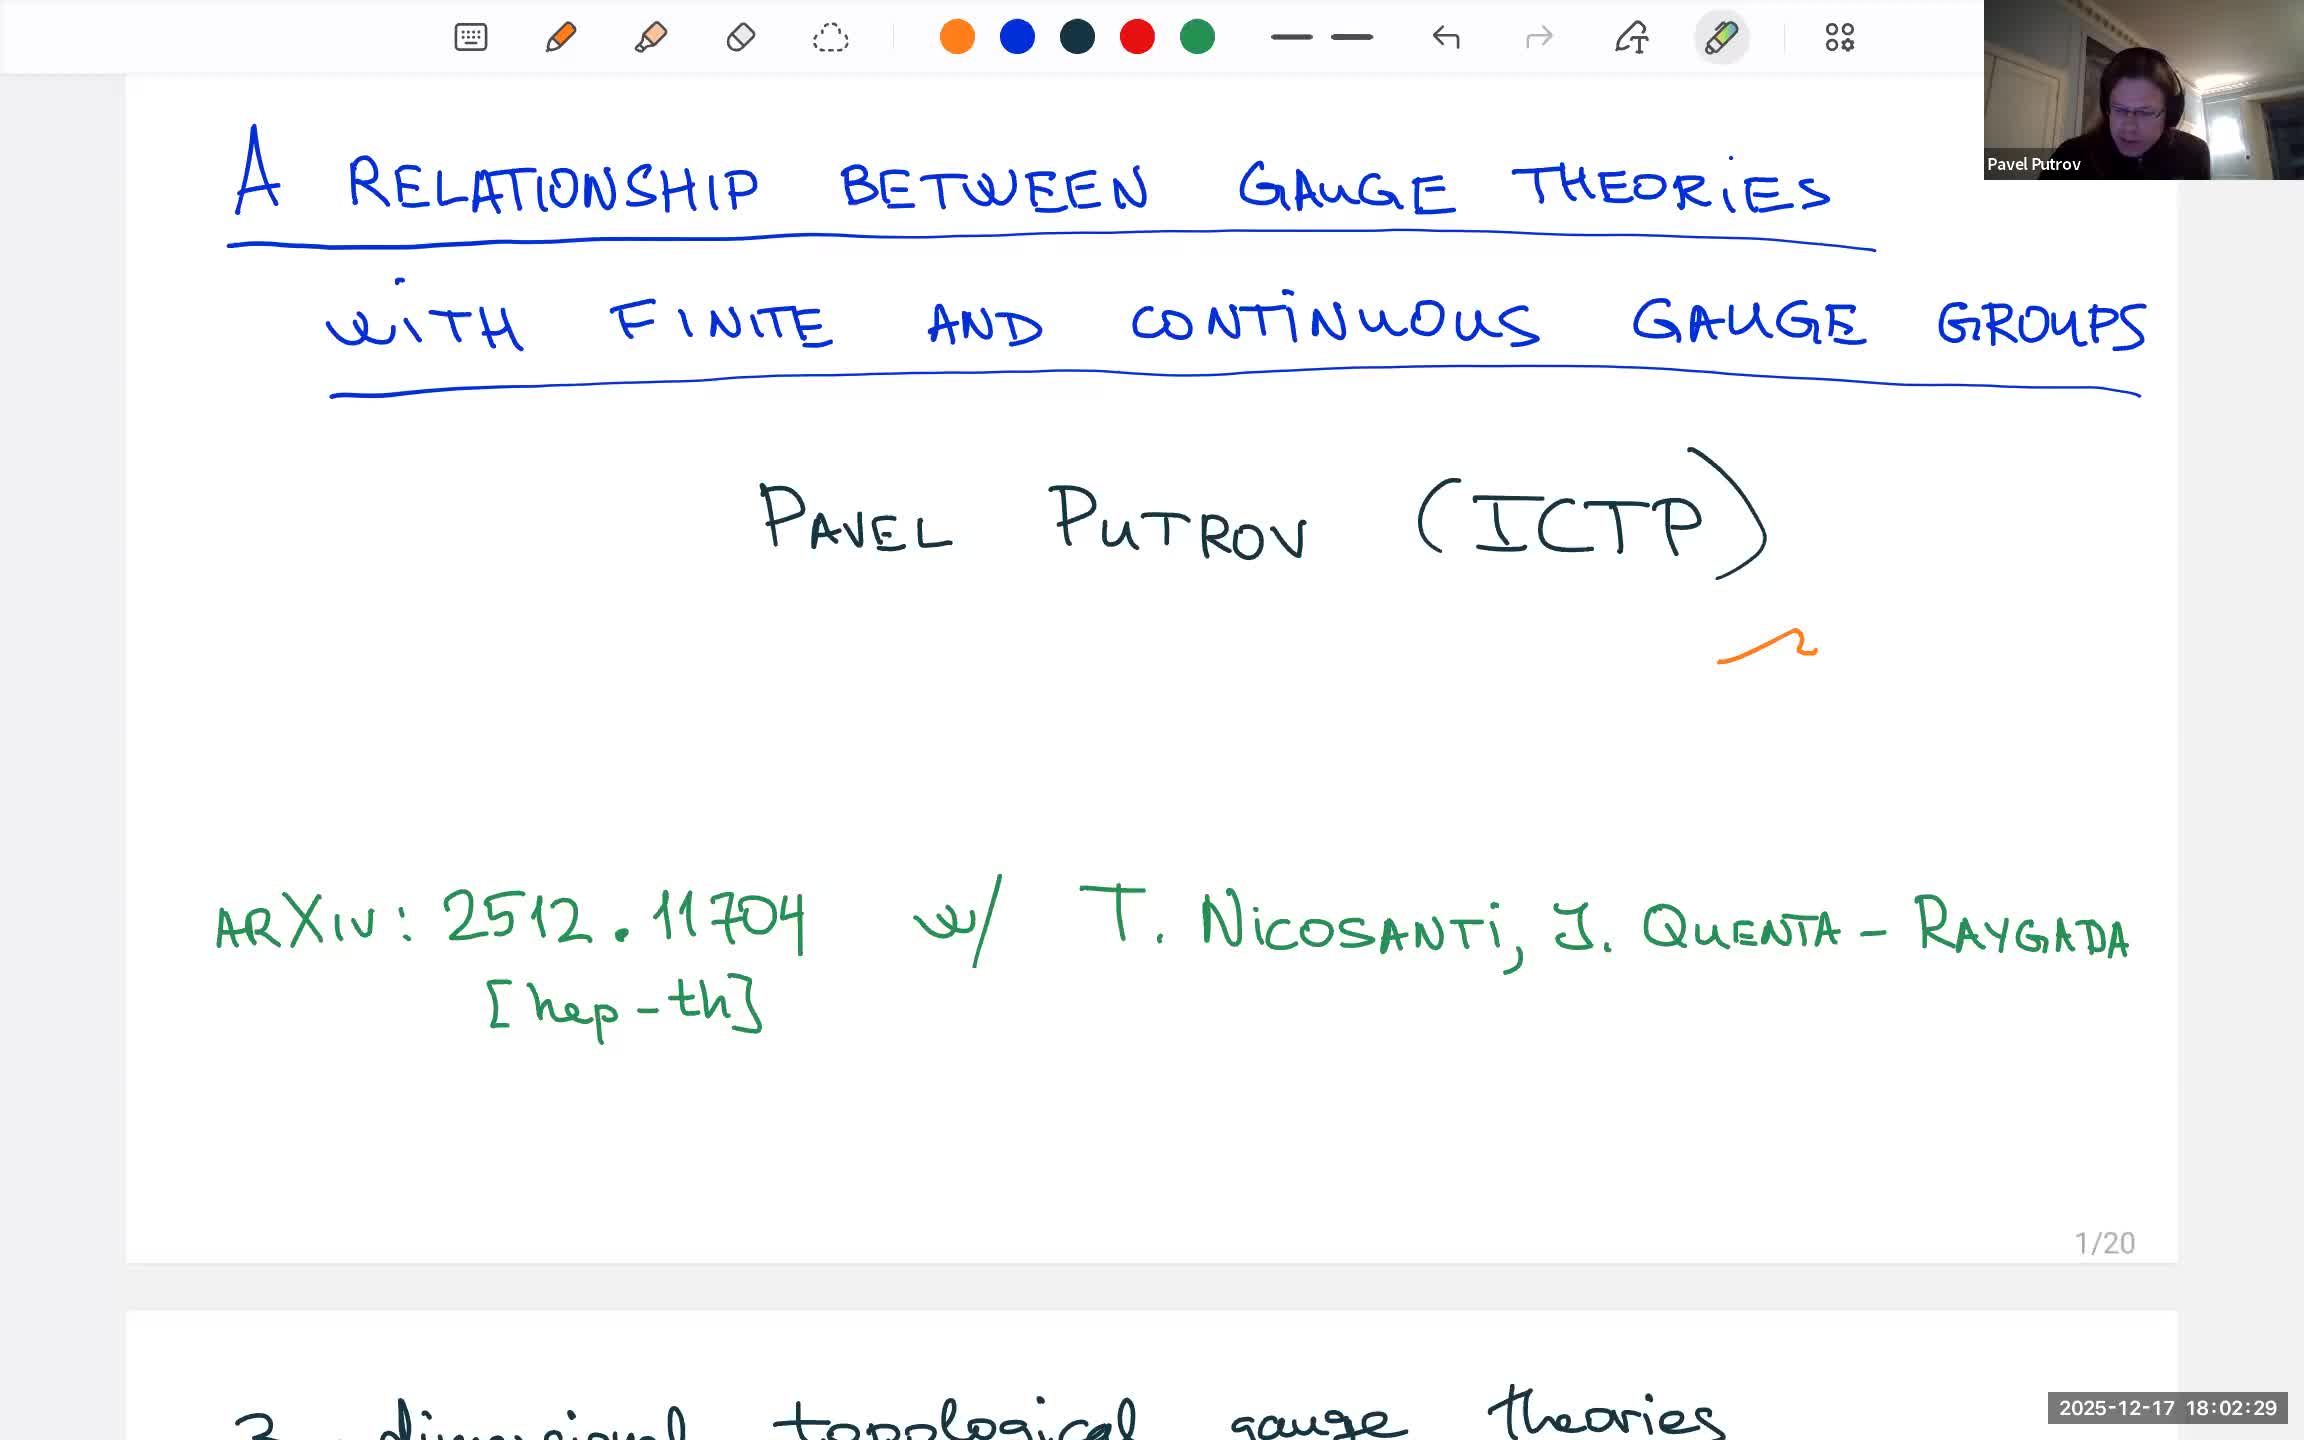 A RELATIONSHIP BETWEEN GAUGE THEORIES
WITH FINITE AND CONTINUOUS GAUGE GROUPS
PAVEL PUTROV (ICTP)
ARXIV: 2512.11704 w/ T. NICOSANTI, J. QUENTA-RAYGADA
[hep-th]
1/20
3-dimensional topological gauge theories
Pavel Putrov
2025-12-17 18:02:29